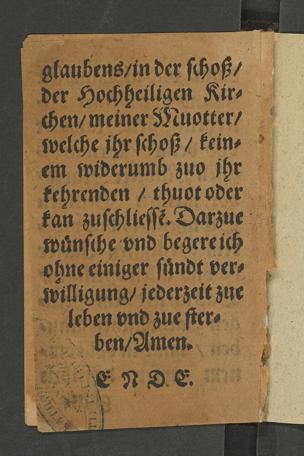 glaubens/in der schoß/
der Hochheiligen Kir-
chen/meiner Muotter/
welche jhr schoß/ kein-
em widerumb zuo jhr
kehrenden / thuot oder
kan zuschliessē. Darzue
wünsche vnd begere ich
ohne einiger sündt ver-
willigung/ jederzeit zue
leben vnd zue ster-
ben/Amen.
E N D E.